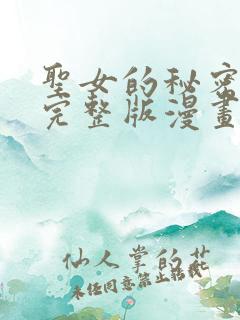 聖女的秘密
完整版漫畫
仙人掌的花
未经同意禁止转载